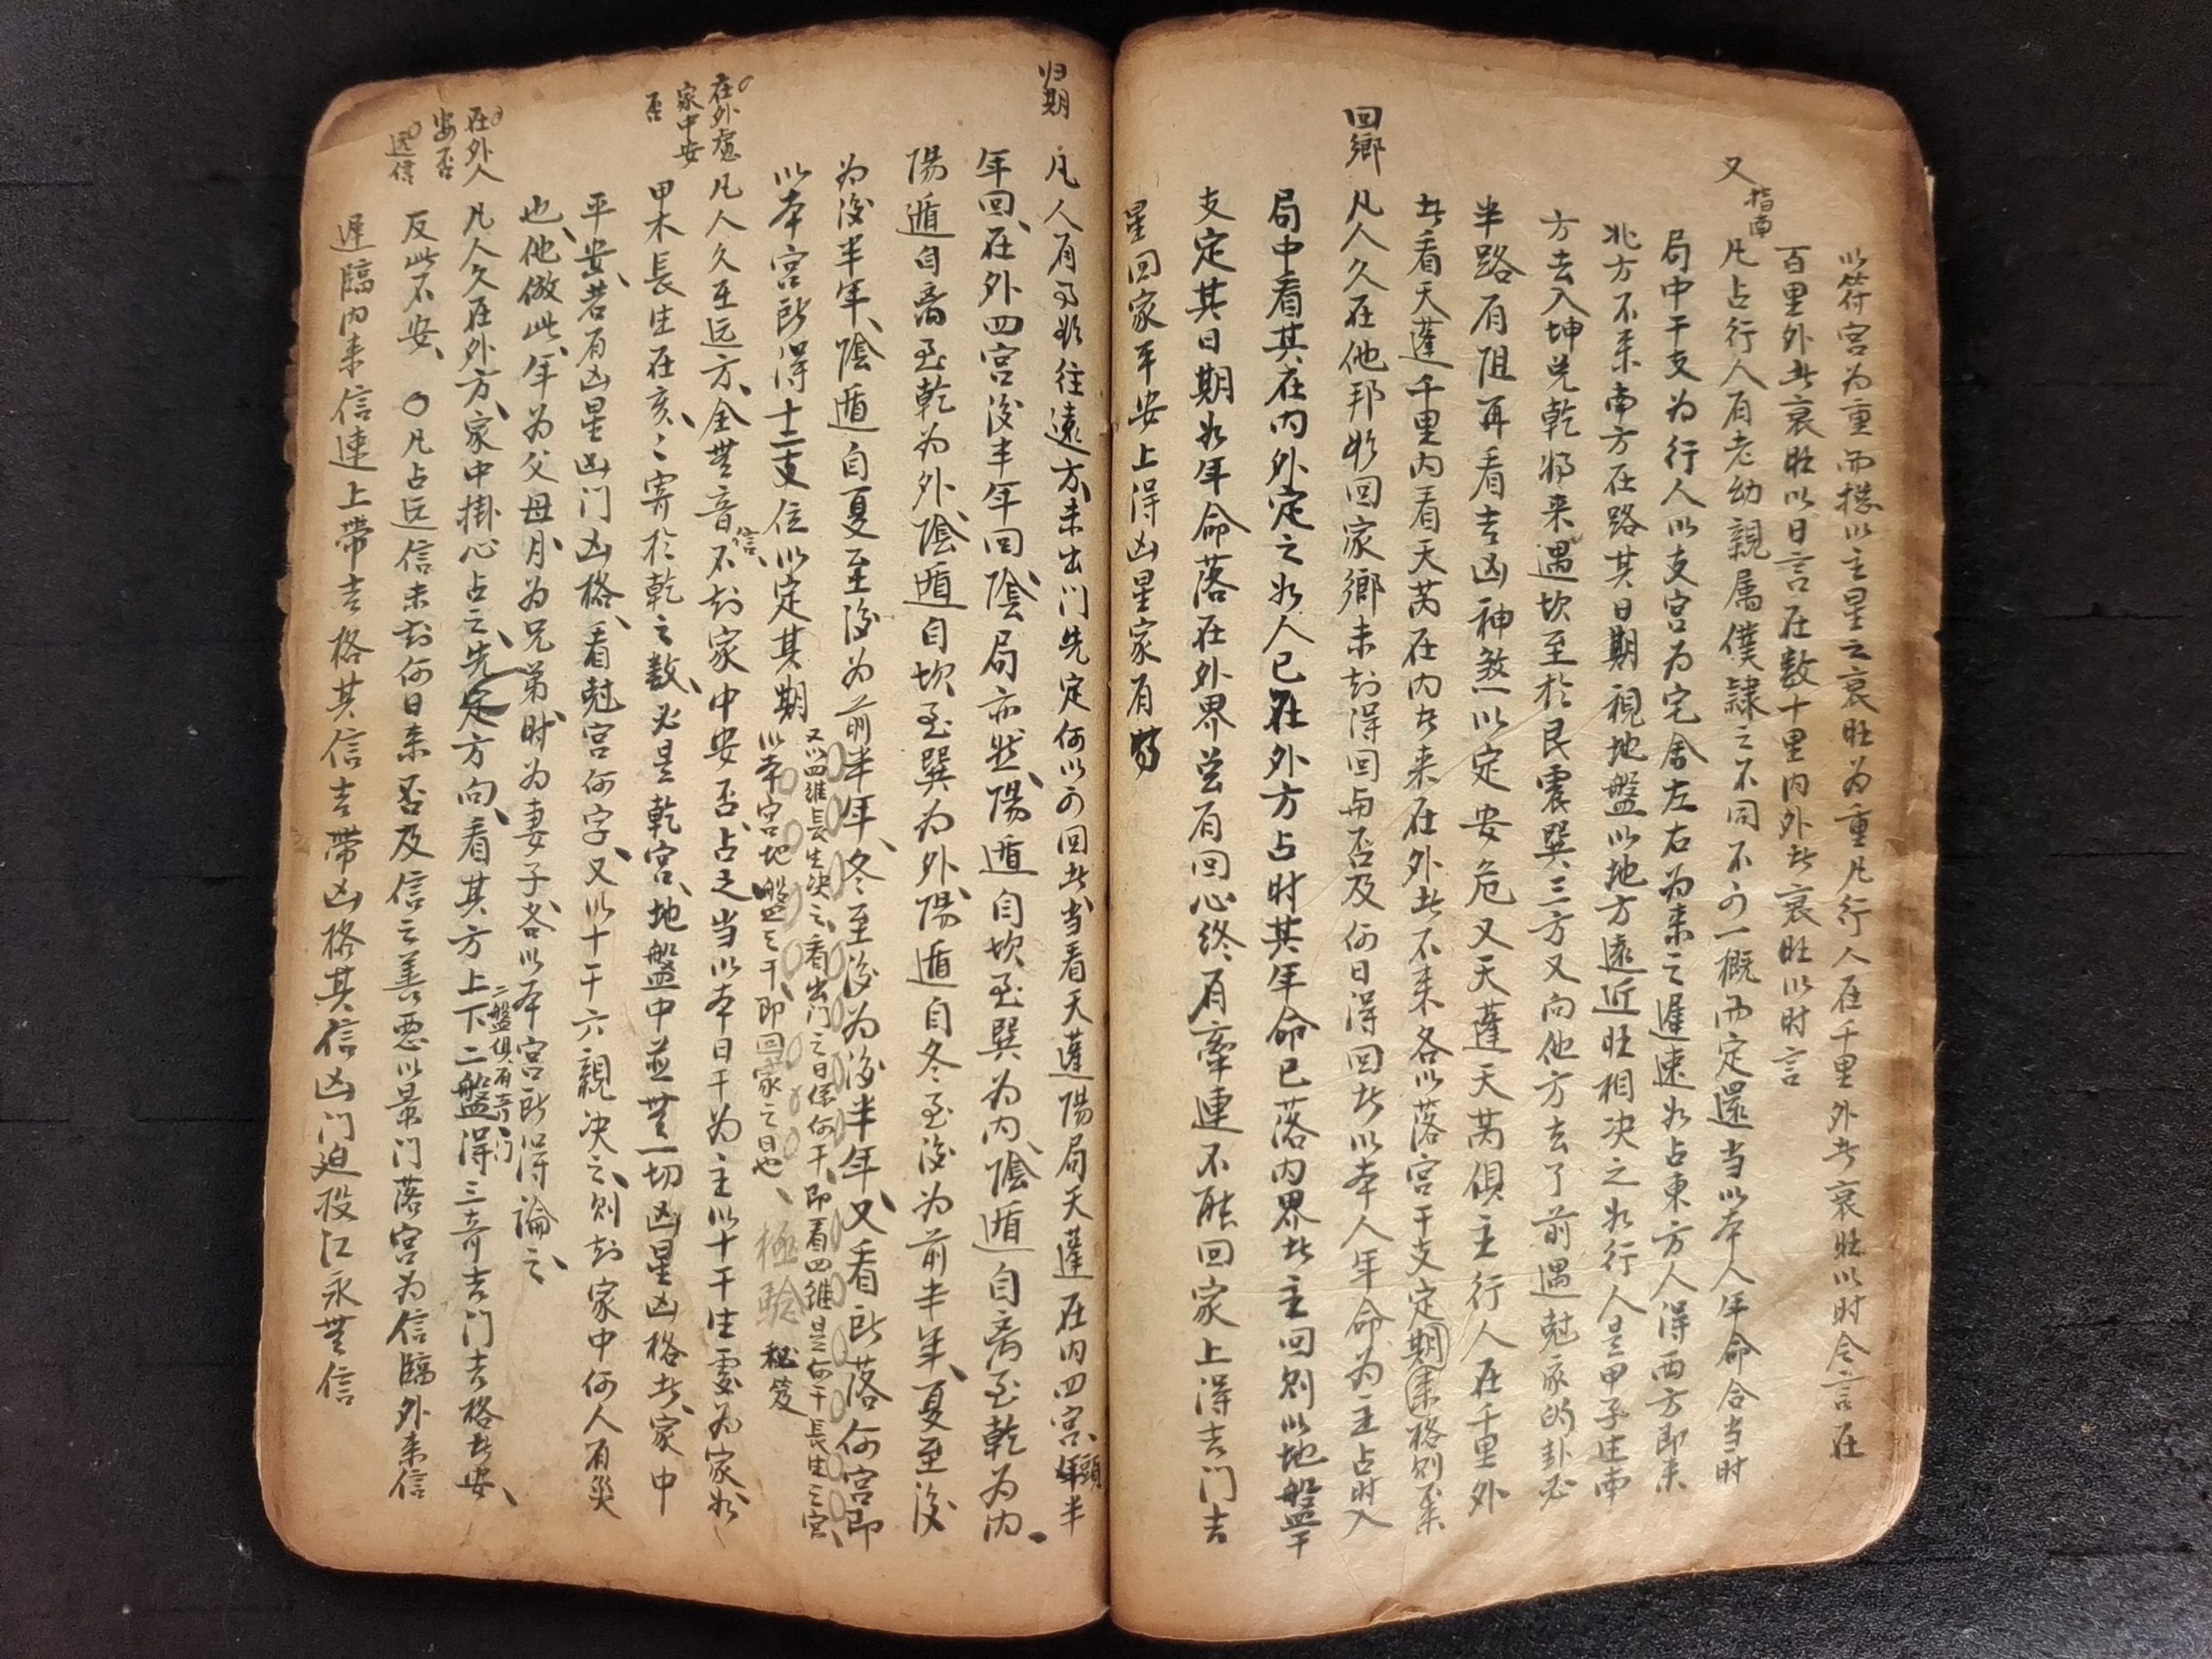 以符宮为重而總以主星之衰旺为重凡行人在千里外者衰旺以时令言在
百里外者衰旺以日言在数十里内外者衰旺以时言
又 指南
凡占行人有老幼親属僕隸之不同不可一概而定還当以本人年命合当时
局中干支为行人以支宮为宅舍左右为来之遲速如占東方人得西方即来
北方不来南方在路其日期視地盤以地方遠近旺相决之如行人是甲子生南
方去入坤兑乾将来遇坎至於艮震巽三方又向他方去了前遇尅家的卦必
半路有阻再看吉凶神煞以定安危又天蓬天芮俱主行人在千里外
者看天蓬千里内看天芮在内者来在外者不来各以落宮干支定期来格则不来
回鄉
凡人久在他邦欲回家鄉未知得回与否及何日得回者以本人年命为主占时入
局中看其在内外定之如人已在外方占时其年命已落内界者主回则以地盤干
支定其日期如年命落在外界岂有回心终有牽連不能回家上得吉门吉
星回家平安上得凶星家有
归期
凡人有事欲往遠方未出门先定何以可回者当看天蓬陽局天蓬在内四宮頭半
年回、在外四宮後半年回陰局亦然、陽遁自坎至巽为内、陰遁自离至乾为内
陽遁自离至乾为外、陰遁自坎至巽为外、陽遁自冬至後为前半年、夏至後
为後半年、陰遁自夏至後为前半年、冬至後为後半年、又看所落何宮即
以本宮所得十二支位以定其期
又以四維長生决之、看出门之日係何干、即看四維是何干長生之宮、
以本宮地盤之干、即回家之日也、極驗 秘笈
在外慮家中安否
凡人久在远方、全無音信、不知家中安否、占之当以本日干为主以十干生處为家如
甲木長生在亥、亥寄於乾之数、必是乾宮、地盤中並無一切凶星凶格者、家中
平安、若有凶星凶门凶格、看尅宮何字、又以十干六親决之、则知家中何人有災
也、他倣此、年为父母、月为兄弟、时为妻子、各以本宮所得論之、
在外人安否
凡人久在外方、家中掛心占之、先定方向、看其方上下二盤得三奇吉门吉格者安、
二盤俱有奇门
反此不安、
远信
○凡占远信未知何日来否及信之善恶以景门落宮为信臨外来信
遲臨内来信速上帶吉格其信吉帶凶格其信凶门迫投江永無信